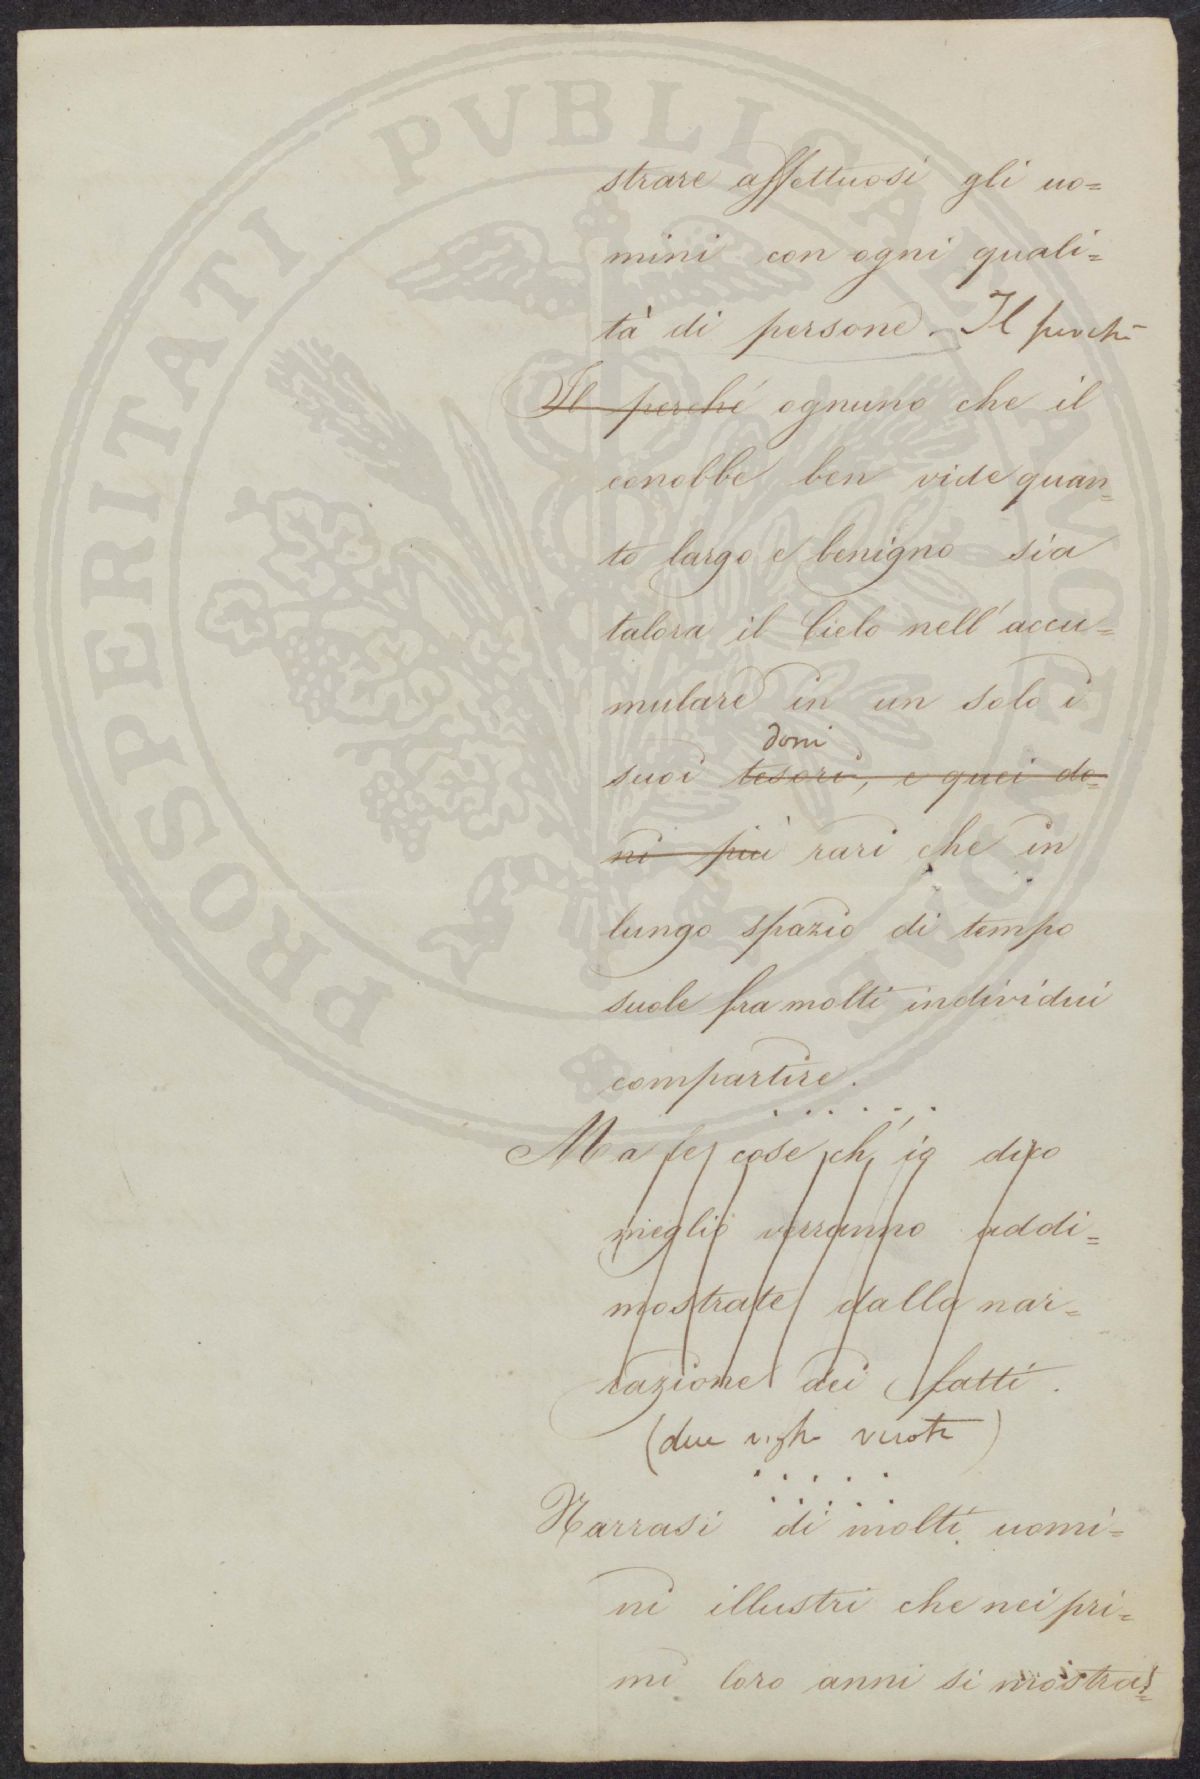 PROSPERITATI PVBLICAE AVGENDAE
strare affettuosi gli uo=
mini con ogni quali=
tà di persone. Il perchè
Il perché ognuno che il
conobbe ben vide quan=
to largo e benigno sia
talora il Cielo nell'accu=
mulare in un solo i
doni
suoi tesori, e quei do=
ni più rari che in
lungo spazio di tempo
suole fra molti individui
compartire.
. . . . . . .
Ma le cose ch'io dico
meglio verranno addi=
mostrate dalla nar=
razione dei fatti.
(due righe vuote)
. . . . .
. . . . .
Narrasi di molti uomi=
ni illustri che nei pri=
mi loro anni si mostra=